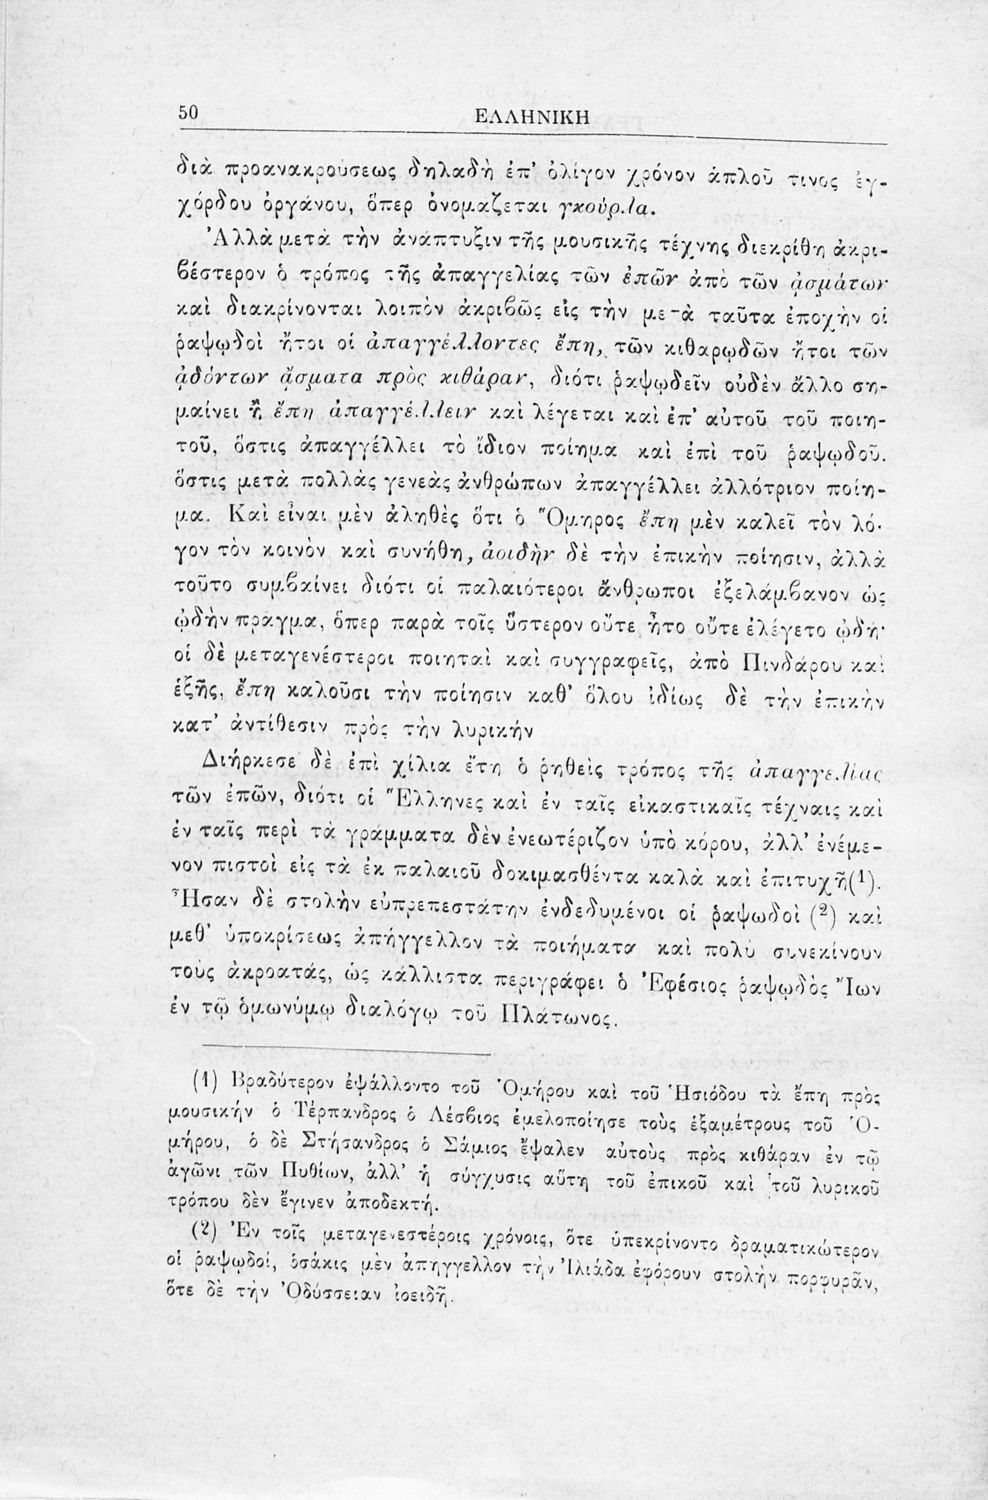 50
ΕΛΛΗΝΙΚΗ
διὰ προανακρούσεως δηλαδὴ ἐπ' ὀλίγον χρόνον ἁπλοῦ τινος ἐγ-
χόρδου ὀργάνου, ὅπερ ὀνομάζεται γκούρλα.
Ἀλλὰ μετὰ τὴν ἀνάπτυξιν τῆς μουσικῆς τέχνης διεκρίθη ἀκρι-
βέστερον ὁ τρόπος τῆς ἀπαγγελίας τῶν ἐπῶν ἀπὸ τῶν ᾀσμάτων
καὶ διακρίνονται λοιπὸν ἀκριβῶς εἰς τὴν μετὰ ταῦτα ἐποχὴν οἱ
ῥαψῳδοὶ ἤτοι οἱ ἀπαγγέλλοντες ἔπη, τῶν κιθαρῳδῶν ἤτοι τῶν
ᾀδόντων ᾄσματα πρὸς κιθάραν, διότι ῥαψῳδεῖν οὐδὲν ἄλλο ση-
μαίνει ἢ ἔπη ἀπαγγέλλειν καὶ λέγεται καὶ ἐπ' αὐτοῦ τοῦ ποιη-
τοῦ, ὅστις ἀπαγγέλλει τὸ ἴδιον ποίημα καὶ ἐπὶ τοῦ ῥαψῳδοῦ.
ὅστις μετὰ πολλὰς γενεὰς ἀνθρώπων ἀπαγγέλλει ἀλλότριον ποίη-
μα. Καὶ εἶναι μὲν ἀληθὲς ὅτι ὁ Ὅμηρος ἔπη μὲν καλεῖ τὸν λό-
γον τὸν κοινὸν καὶ συνήθη, ἀοιδὴν δὲ τὴν ἐπικὴν ποίησιν, ἀλλὰ
τοῦτο συμβαίνει διότι οἱ παλαιότεροι ἄνθρωποι ἐξελάμβανον ὡς
ᾠδὴν πρᾶγμα, ὅπερ παρὰ τοῖς ὕστερον οὔτε ἦτο οὔτε ἐλέγετο ᾠδή·
οἱ δὲ μεταγενέστεροι ποιηταὶ καὶ συγγραφεῖς, ἀπὸ Πινδάρου καὶ
ἑξῆς, ἔπη καλοῦσι τὴν ποίησιν καθ' ὅλου ἰδίως δὲ τὴν ἐπικὴν
κατ' ἀντίθεσιν πρὸς τὴν λυρικήν
Διήρκεσε δὲ ἐπὶ χίλια ἔτη ὁ ῥηθεὶς τρόπος τῆς ἀπαγγελίας
τῶν ἐπῶν, διότι οἱ Ἕλληνες καὶ ἐν ταῖς εἰκαστικαῖς τέχναις καὶ
ἐν ταῖς περὶ τὰ γράμματα δὲν ἐνεωτέριζον ὑπὸ κόρου, ἀλλ' ἐνέμε-
νον πιστοὶ εἰς τὰ ἐκ παλαιοῦ δοκιμασθέντα καλὰ καὶ ἐπιτυχῆ(1).
Ἦσαν δὲ στολὴν εὐπρεπεστάτην ἐνδεδυμένοι οἱ ῥαψῳδοὶ (2) καὶ
μεθ' ὑποκρίσεως ἀπήγγελλον τὰ ποιήματα καὶ πολὺ συνεκίνουν
τοὺς ἀκροατάς, ὡς κάλλιστα περιγράφει ὁ Ἐφέσιος ῥαψῳδὸς Ἴων
ἐν τῷ ὁμωνύμῳ διαλόγῳ τοῦ Πλάτωνος.
(1) Βραδύτερον ἐψάλλοντο τοῦ Ὁμήρου καὶ τοῦ Ἡσιόδου τὰ ἔπη πρὸς
μουσικήν ὁ Τέρπανδρος ὁ Λέσβιος ἐμελοποίησε τοὺς ἑξαμέτρους τοῦ Ὁ-
μήρου, ὁ δὲ Στήσανδρος ὁ Σάμιος ἔψαλεν αὐτοὺς πρὸς κιθάραν ἐν τῷ
ἀγῶνι τῶν Πυθίων, ἀλλ' ἡ σύγχυσις αὕτη τοῦ ἐπικοῦ καὶ τοῦ λυρικοῦ
τρόπου δὲν ἔγινεν ἀποδεκτή.
(2) Ἐν τοῖς μεταγενεστέροις χρόνοις, ὅτε ὑπεκρίνοντο δραματικώτερον
οἱ ῥαψῳδοί, ὁσάκις μὲν ἀπήγγελλον τὴν Ἰλιάδα ἐφόρουν στολὴν πορφυρᾶν,
ὅτε δὲ τὴν Ὀδύσσειαν ἰοειδῆ.